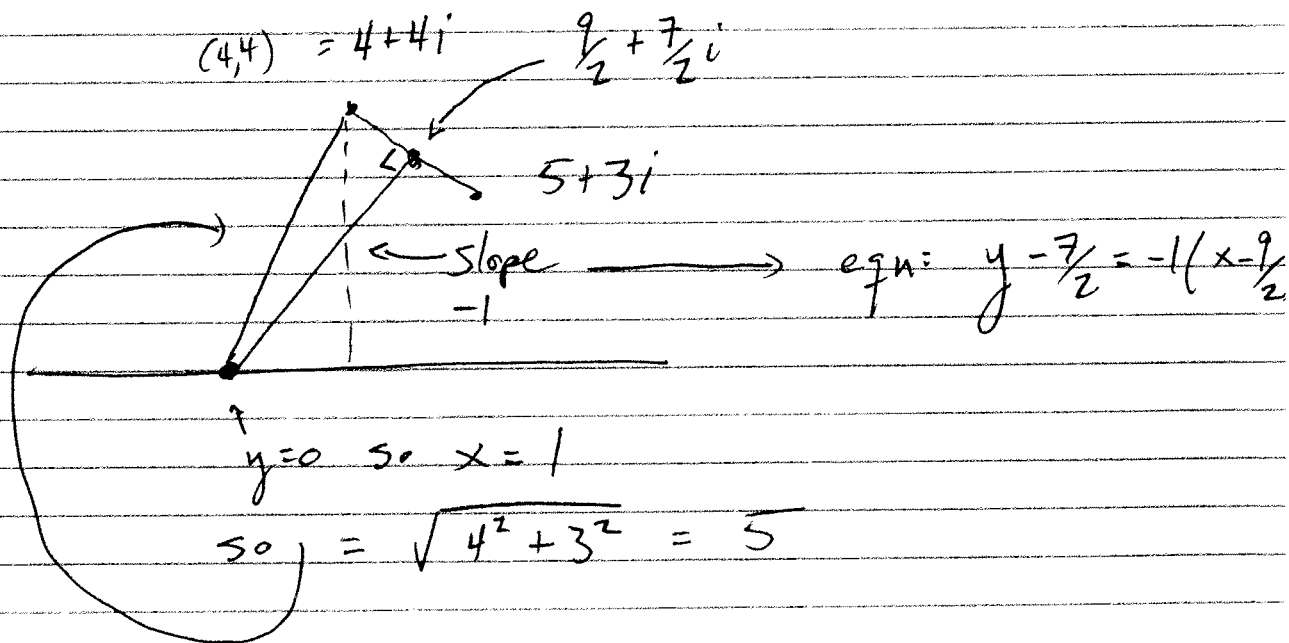 (4,4) = 4+4i 9/2 + 7/2 i
5+3i
slope eqn: y - 7/2 = -1(x-9/2
-1
y=0 so x=1
so = √(4²+3²) = 5